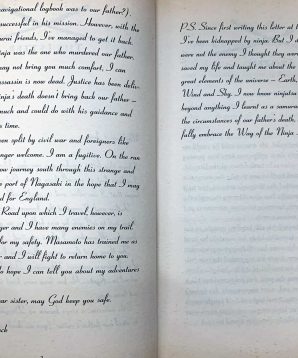 navigational logbook was to our father?).
successful in his mission. However, with the
friends, I've managed to get it back.
ninja was the one who murdered our father.
may not bring you much comfort, I can
assassin is now dead. Justice has been deli-
ninja's death doesn't bring back our father –
much and could do with his guidance and
s time.
een split by civil war and foreigners like
nger welcome. I am a fugitive. On the run
w journey south through this strange and
e port of Nagasaki in the hope that I may
d for England.
Road upon which I travel, however, is
ger and I have many enemies on my trail.
for my safety. Masamoto has trained me as
r and I will fight to return home to you.
do hope I can tell you about my adventures
ear sister, may God keep you safe.
ck
P.S. Since writing this letter at t
I've been kidnapped by ninja. But I d
were not the enemy I thought they wer
saved my life and taught me about the
great elements of the universe – Earth,
Wind and Sky. I now know ninjutsu
beyond anything I learnt as a samura
the circumstances of our father's death,
fully embrace the Way of the Ninja